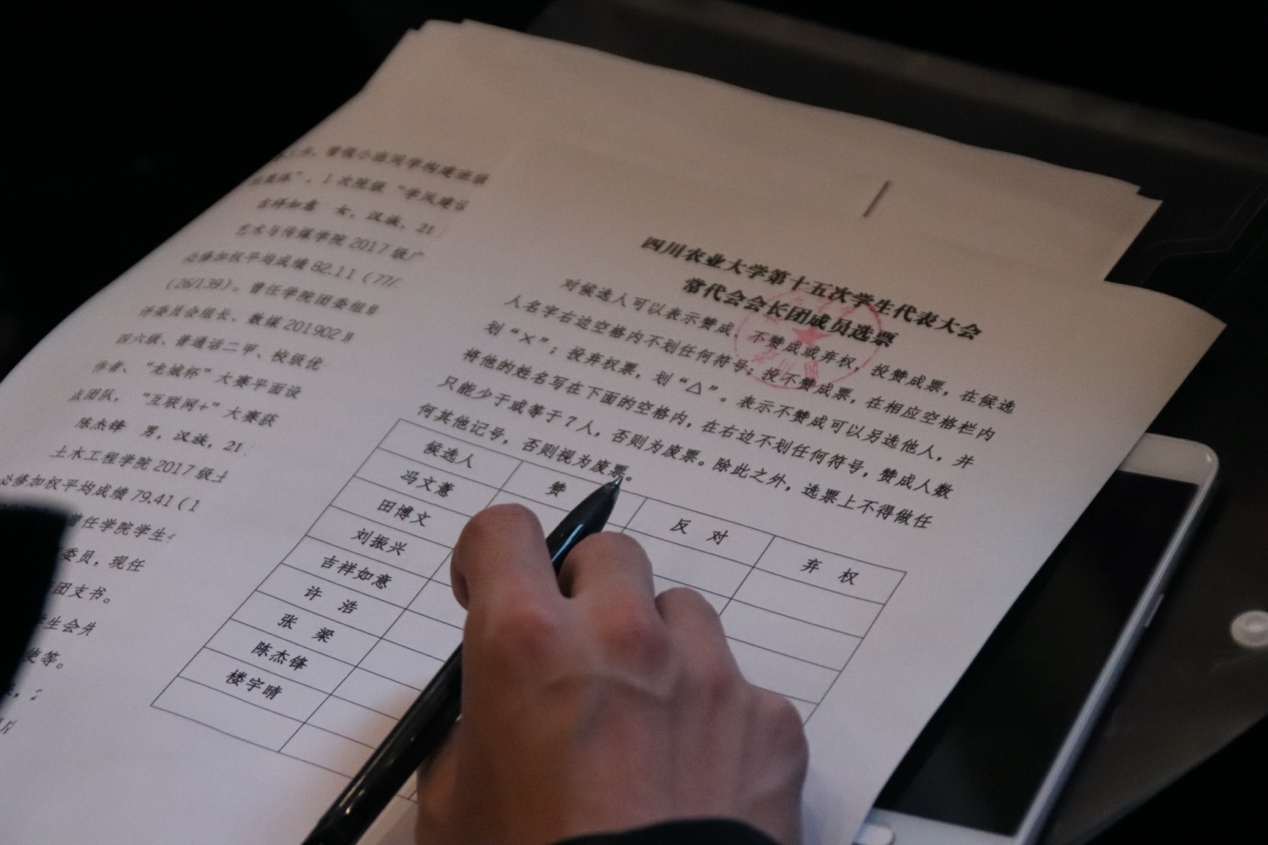 曾任学院团委组
1次院级“学风建设
吉祥如意 女，汉族，21
艺术与传媒学院2017级广
必修加权平均成绩82.11（77/
(26/139)。曾任学院团委组
评委员会组长、数媒201902
四六级、普通话二甲、校级优
作者、“老城杯”大赛平面设
点团队，“互联网+”大赛获
陈杰锋 男，汉族，21
土木工程学院2017级土
必修加权平均成绩79.41（1
曾任学院学生
委员，现任
团支书。
生会
等。
四川农业大学第十五次学生代表大会
常代会会长团成员选票
对候选人可以表示赞成、不赞成或弃权，投赞成票，在候选
人名字右边空格内不划任何符号；投不赞成票，在相应空格栏内
划“×”；投弃权票，划“△”。表示不赞成可以另选他人，并
将他的姓名写在下面的空格内，在右边不划任何符号，赞成人数
只能少于或等于7人，否则为废票。除此之外，选票上不得做任
何其他记号，否则视为废票。
候选人 赞 反 对 弃 权
冯文薏
田博文
刘振兴
吉祥如意
许 浩
张 梁
陈杰锋
楼宇晴